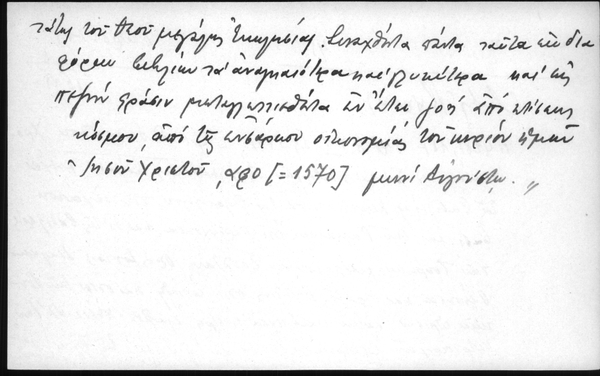 τάτης τοῦ Θεοῦ μεγάλης Ἐκκλησίας. Συναχθέντα πάντα ταῦτα ἐκ δια
φόρων βιβλίων τὰ ἀναγκαιότερα καὶ γλυκύτερα καὶ εἰς
πεζὴν φράσιν μεταγλωττισθέντα ἐν ἔτει ζοή ἀπὸ κτίσεως
κόσμου, ἀπὸ τῆς ἐνσάρκου οἰκονομίας τοῦ κυρίου ἡμῶν
Ἰησοῦ Χριστοῦ, ͵αφο [= 1570] μηνὶ Αὐγούστῳ. „